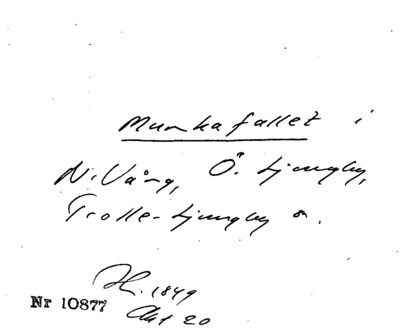 Munkafallet i
N. Vång, Ö. Ljungby,
Trolle-Ljungby s.
H. 1849
Akt 20
Nr 10877